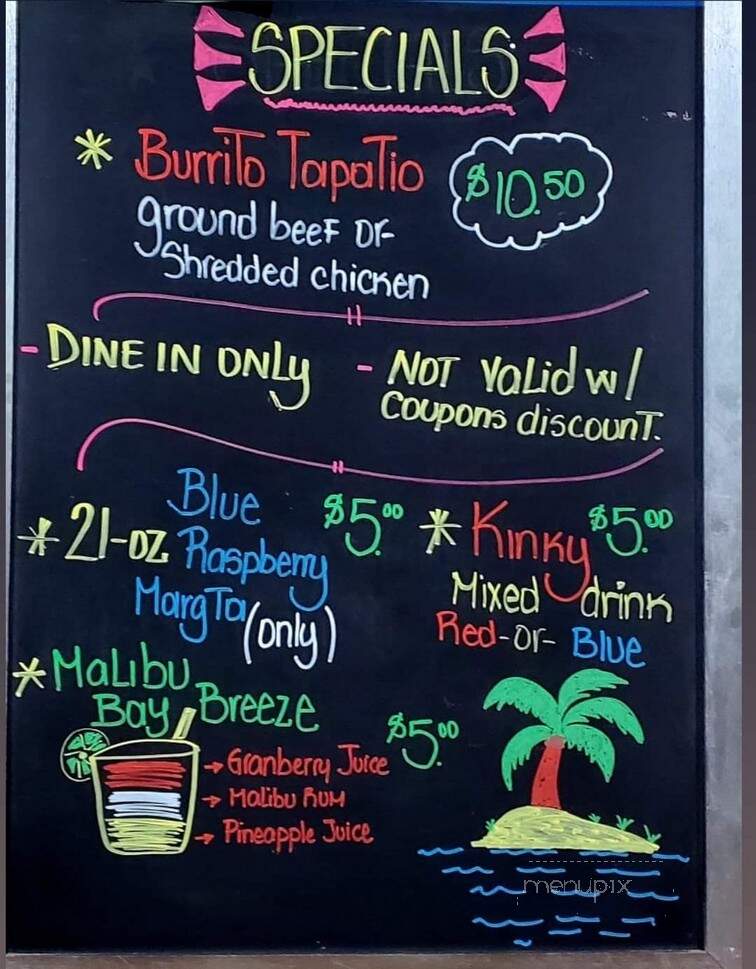 SPECIALS
* Burrito Tapatio $10.50
ground beef or
Shredded chicken
- DINE IN ONLY
- NOT Valid w/
Coupons discount.
* 21-oz Blue Raspberry $5.00
MargTa (only)
* Kinky $5.00
Mixed drink
Red-or-Blue
* Malibu
Bay Breeze $5.00
→ Granberry Juice
→ Malibu Rum
→ Pineapple Juice
menupix